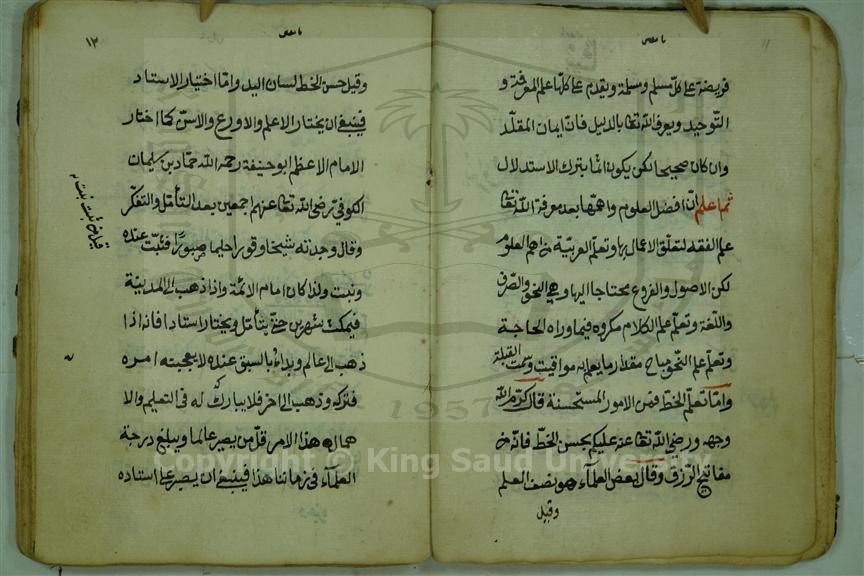 فريضة على كل مسلم ومسلمة ويقدم على كلها علم المعرفة و
التوحيد ويعرف الله تعا بالدليل فان ايمان المقلد
وان كان صحيحا لكن يكون اثما بترك الاستدلال
ثم اعلم ان افضل العلوم واهمها بعد معرفة الله تعا
علم الفقه لتعلق الاعمال بها وتعلم العربية من اهم العلوم
لكن الاصول والفروع محتاجا اليها وهي النحو والصرف
واللغة وتعلم علم الكلام مكروه فيما وراه الحاجة
وتعلم علم النجوم مباح مقدار ما يعلم به مواقيت وسمت القبلة
واما تعلم الخط فمن الامور المستحسنة قال كرم الله
وجهه ورضي الله تعا عنه عليكم بحسن الخط فانه من
مفاتيح الرزق وقال بعض العلماء هو نصف العلم
وقيل
١٢
وقيل حسن الخط لسان اليد واما اختيار الاستاد
فينبغى ان يختار الاعلم والاورع والاسن كما اختار
الامام الاعظم ابو حنيفة رحمه الله حماد بن سليمان
الكوفي رضي الله تعا عنهم اجمعين بعد التأمل والتفكر
وقال وجدته شيخا وقورا حليما صبورا فثبت عنده
ونبت ولذا كان امام الائمة واذا ذهب الى المدينة
فيمكث شهرين حتى يتأمل ويختار استادا فانه اذا
ذهب الى عالم وبداء بالسبق عنده لا يعجبه امره
فتركه وذهب الى اخر فلا يبارك له في التعليم والا
همال هذا الامر قل من يصير عالما ويبلغ درجة
العلماء في زماننا هذا فينبغى ان يصبر على استاده
Copyright © King Saud University
1957